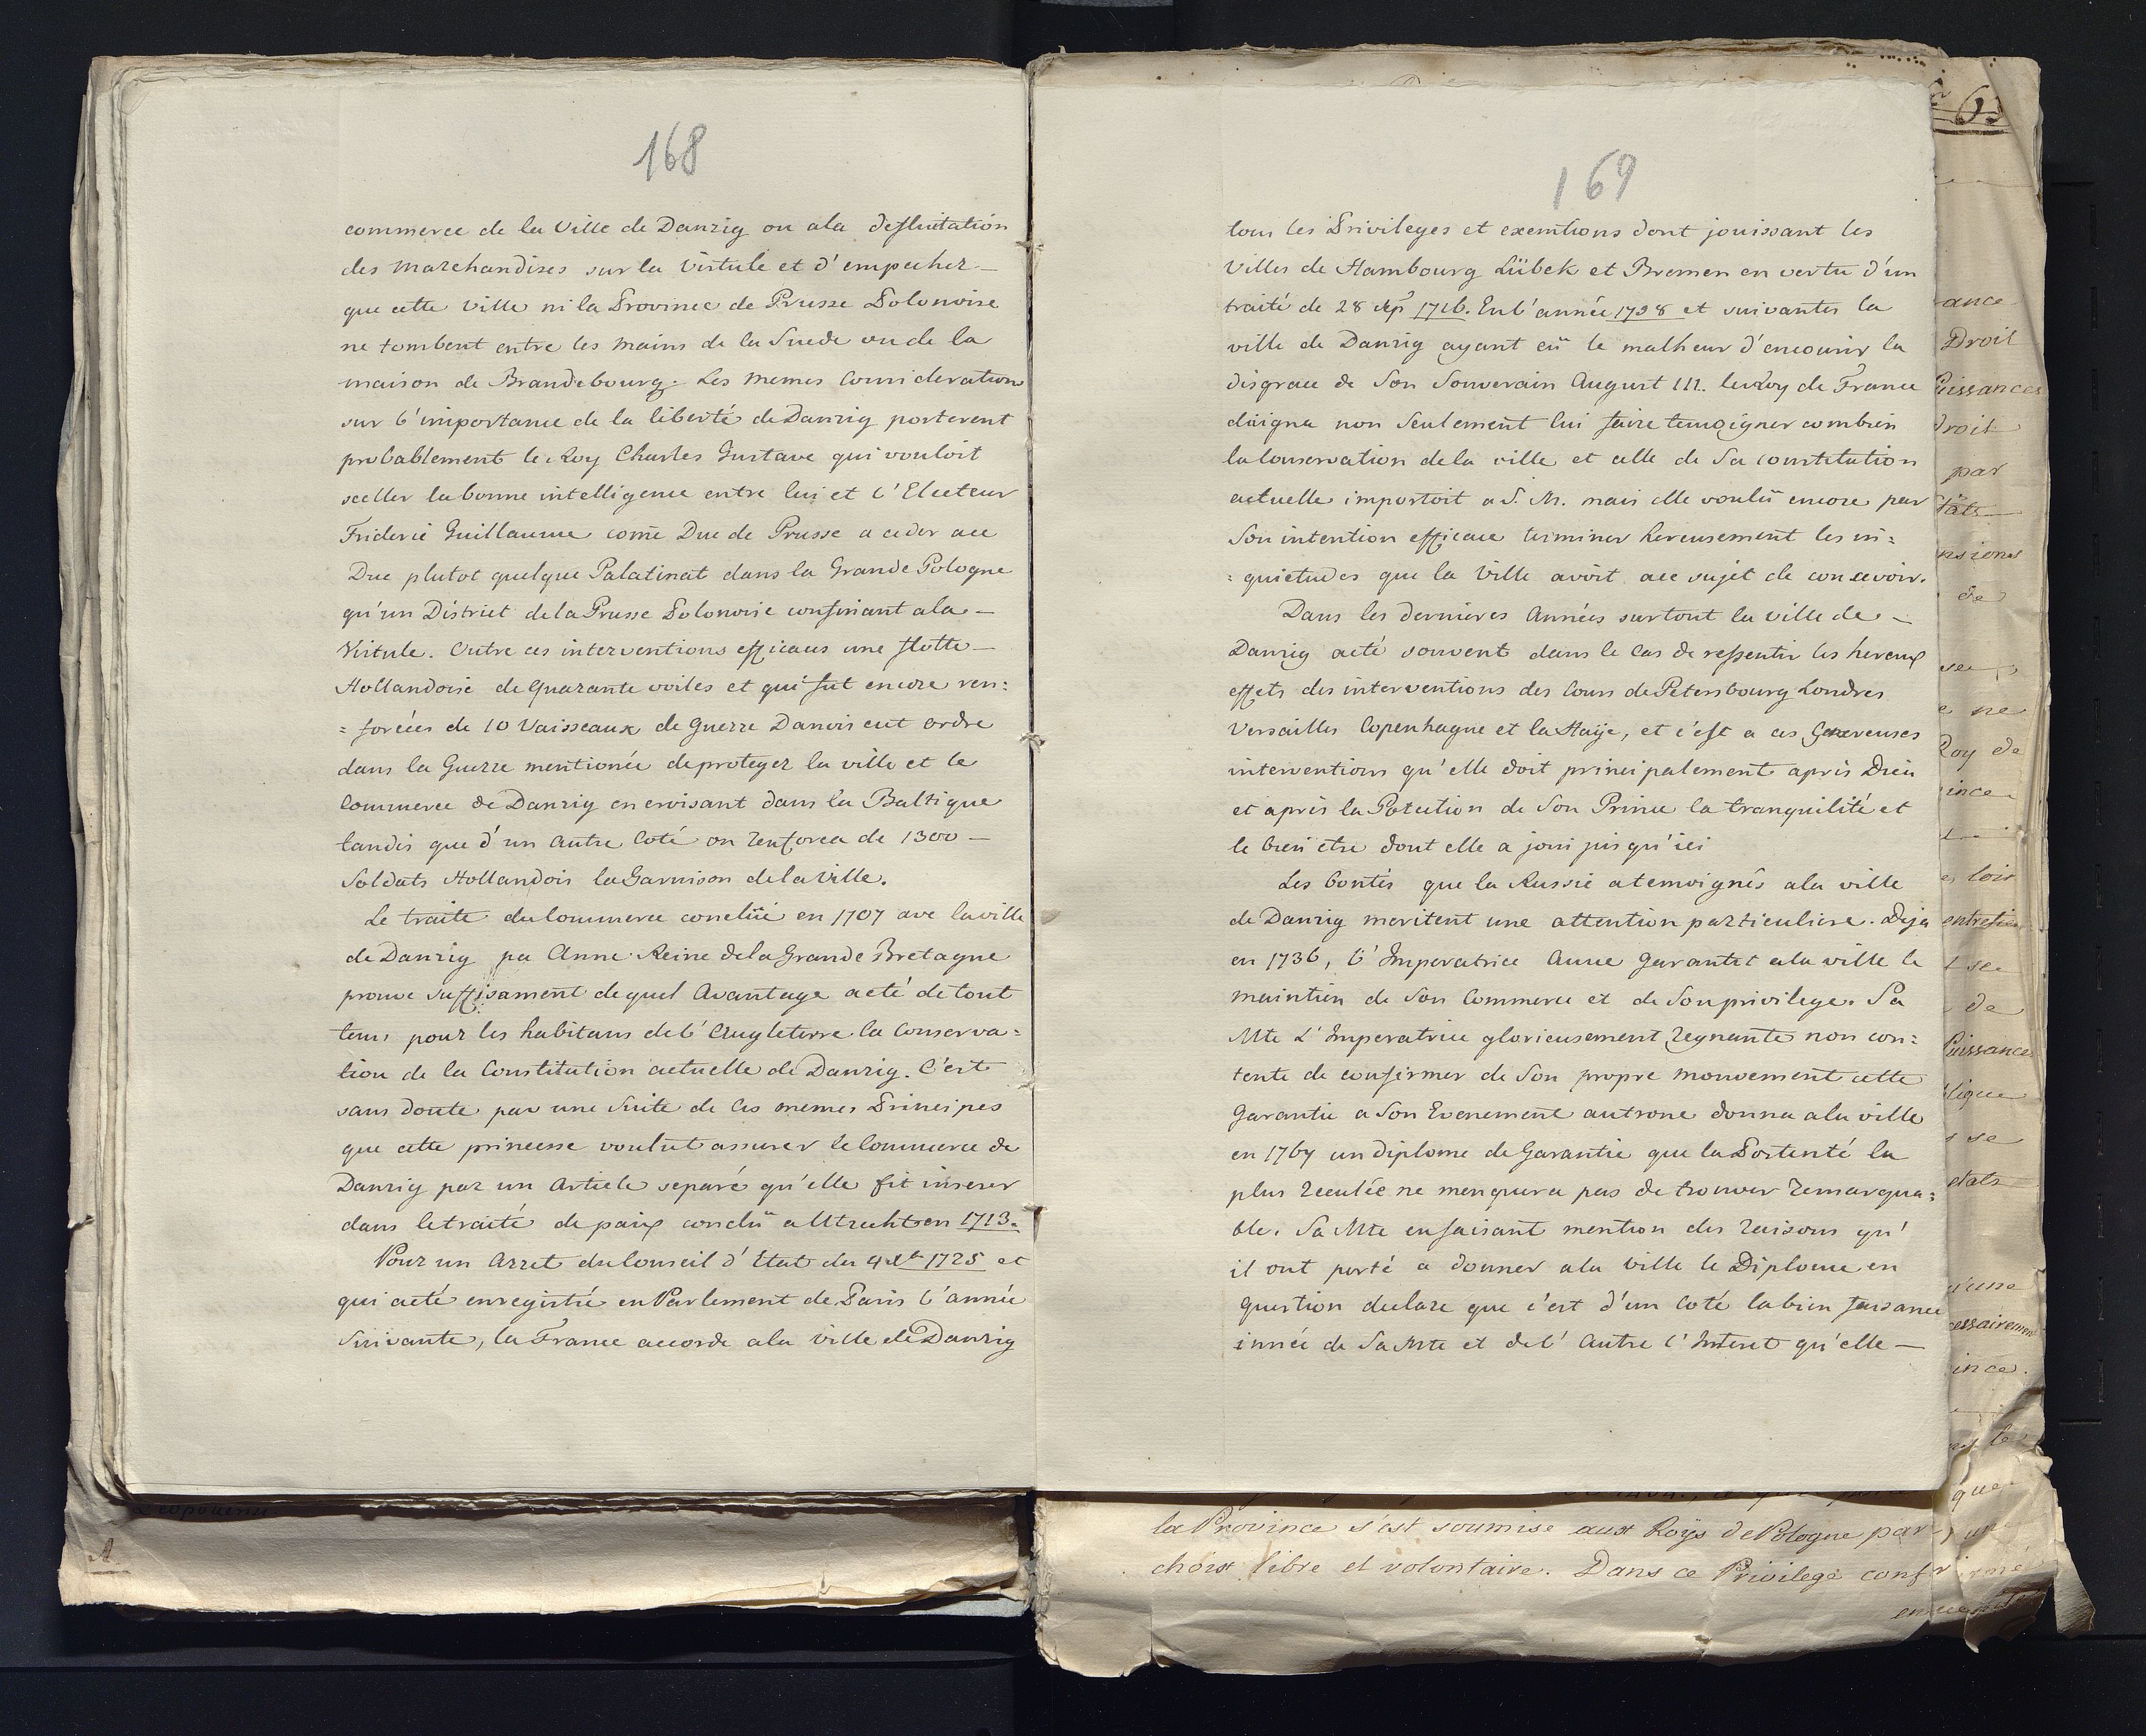 168
commerce de la Ville de Danzig ou ala defluitation
des Marchandises sur la Vistule et d'empecher
que cette Ville ni la Province de Prusse Polonoise
ne tombent entre les mains de la Suede ou de la
maison de Brandebourg. Les memes Considerations
sur l'importance de la liberté de Danzig porterent
probablement le Roy Charles Gustave qui vouloit
sceller la bonne intelligence entre lui et l'Electeur
Frideric Guillaume come Duc de Prusse a ceder ace
Duc plutot quelque Palatinat dans la Grande Pologne
qu'un District de la Prusse Polonoise confinant ala
Vistule. Outre ces interventions efficaces une flotte
Hollandoise de Quarante voiles et qui fut encore ren:
= forcées de 10 Vaisseaux de Guerre Danois eut ordre
dans la Guerre mentionée de proteger la ville et le
Commerce de Danzig en croisant dans la Baltique
tandis que d'un Autre Coté on renforca de 1300
Soldats Hollandois la Garnison de la Ville.
Le traite du Commerce conclüe en 1707 ave la ville
de Danzig pa Anne Reine de la Grande Bretagne
prouve suffisament de quel Avantage aeté de tout
tems pour les habitans de l'Angleterre la Conserva=
tion de la Constitution actuelle de Danzig. C'est
sans doute par une Suite de ces memes Principes
que cette princesse voulut assurer le Commerce de
Danzig par un Article separé qu'elle fit inserer
dans le traité de paix conclü a Utrecht en 1713.
Pour un Arret du Conseil d'Etat du 4 1725 et
qui aeté enregistré en Parlement de Paris l'année
Suivante, la France accorde ala Ville de Danzig
169
tous les Privileges et exemtions dont jouissant les
Villes de Hambourg Lübek et Bremen en vertu d'un
traité de 28 1716. En l'année 1738 et suivantes la
ville de Danzig ayant eü le malheur d'encourir la
disgrace de Son Souverain August III. le Roy de France
daigna non Seulement lui faire temoigner combien
la Conservation de la ville et celle de Sa Constitution
actuelle importoit a S. M. mais elle voulü encore par
Son intention efficace terminer hereusement les in:
= quietudes que la Ville avoit ace sujet de concevoir.
Dans les dernieres Années surtout la ville de
Danzig aeté souvent dans le Cas de ressentir les hereux
effets des interventions des Cours de Petersbourg Londres
Versailles Copenhague et la Haÿe, et c'est a ces Genereuses
interventions qu'elle doit principalement après Dieu
et après la Potection de Son Prince la tranquilité et
le bien etre dont elle a joui jusqu'ici
Les bontés que la Russie atemoignés ala ville
de Danzig meritent une attention particuliere. Deja
en 1736, l'Imperatrice Anne Garantit ala ville le
maintien de Son Commerce et de Son privilege. Sa
Mte L'Imperatrice glorieusement regnante non con:
tente de confirmer de Son propre mouvement cette
Garantie a Son Evenement autrone donna ala ville
en 1767 un diplome de Garantie que la Posterité la
plus reculée ne menquera pas de trouver remarqua:
ble. Sa Mte en faisant mention des raisons qu'
il ont porté a donner ala Ville le Diplome en
Question declare que c'est d'un Coté la bien faisance
innée de Sa Mte et de l'Autre l'Interet qu'elle
ance
Droit
uissances
droit
par
tats
nsions
de
se
e ne
Roy de
ince
es loix
entretien
t se
de
Puissance
lique
s se
etats
qu'une
cessairement
ince.
le
que
la Province s'est soumise aux Roÿs de Pologne par
choix libre et volontaire. Dans ce Privilege conf